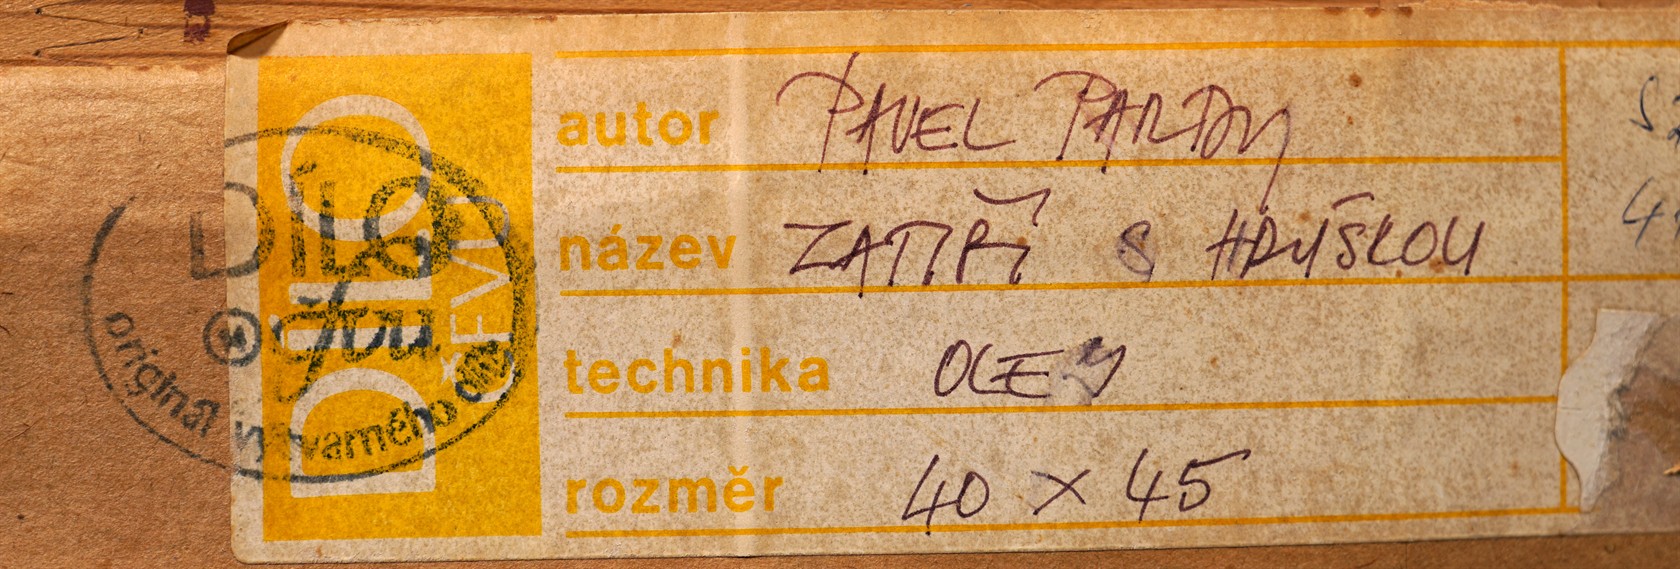 DÍLO
ČFVU
DÍLO
čfvu
originál výtvarného díla
autor PAVEL PARDY
název ZÁTIŠÍ S HRUŠKOU
technika OLEJ
rozměr 40 x 45